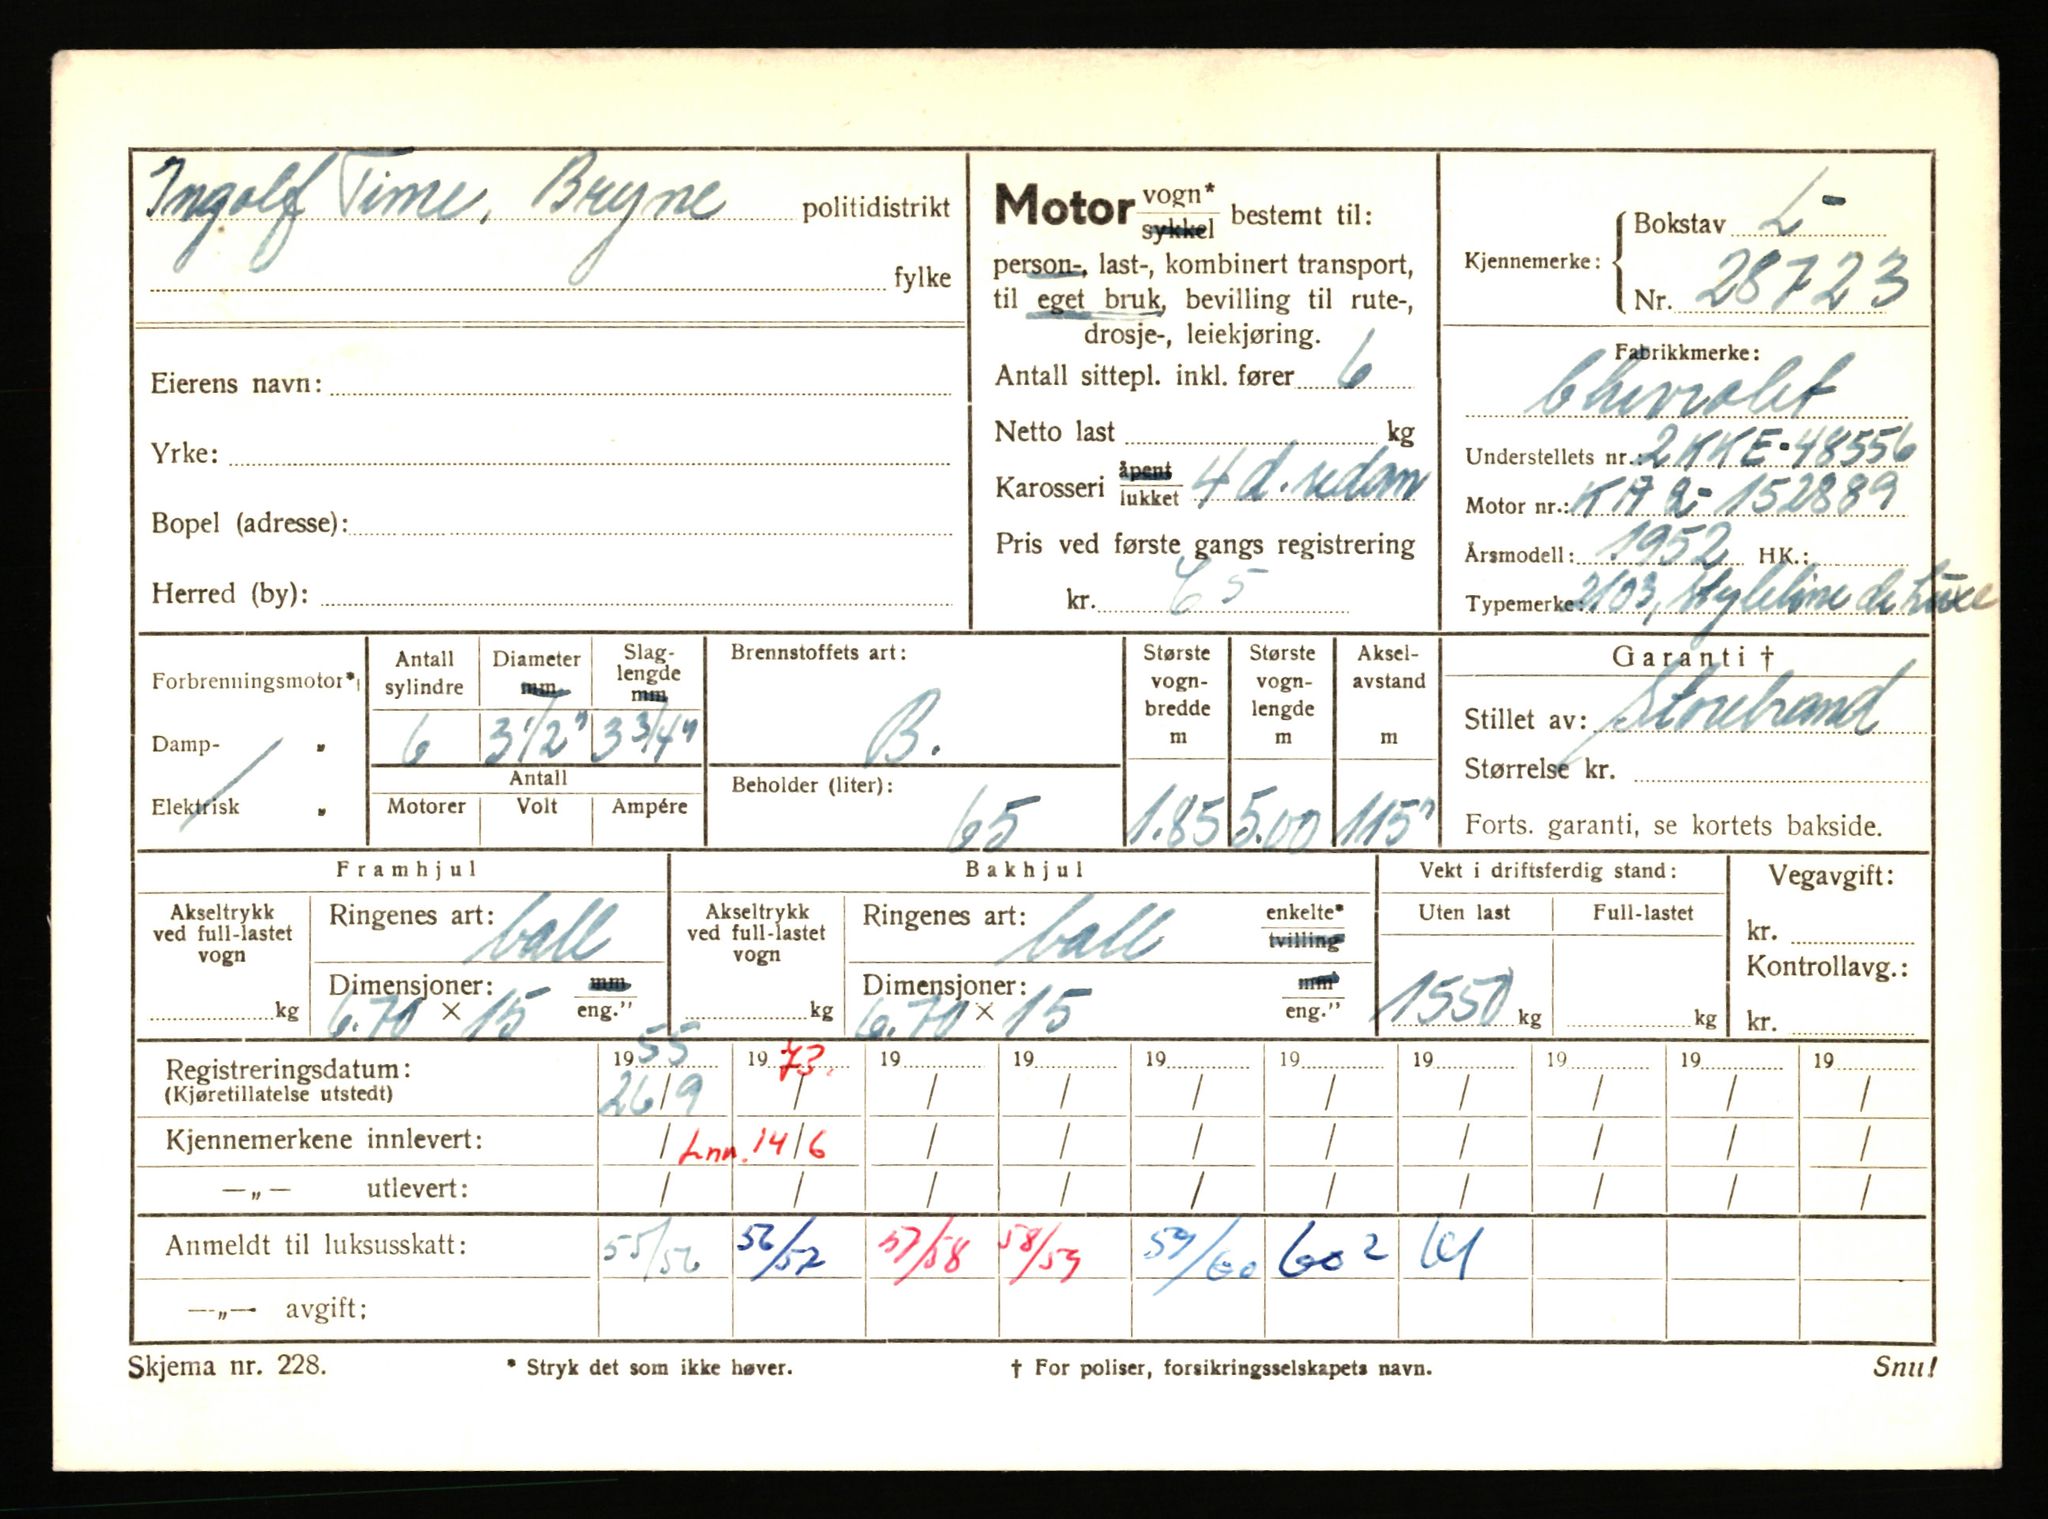 Ingolf Time, Bryne politidistrikt
fylke
Eierens navn:
Yrke:
Bopel (adresse):
Herred (by):
Motor vogn* sykkel bestemt til:
person-, last-, kombinert transport,
til eget bruk, bevilling til rute-,
drosje-, leiekjøring.
Antall sittepl. inkl. fører 6
Netto last kg
Karosseri åpent lukket 4 d. sedan
Pris ved første gangs registrering
kr. 65
Kjennemerke: Bokstav L-
Nr. 28723
Fabrikkmerke:
Chevrolet
Understellets nr.: 2KKE-48556
Motor nr.: KA2-152889
Årsmodell: 1952 HK.:
Typemerke: 2103, Styleline de Luxe
Forbrenningsmotor*,
Damp- "
Elektrisk "
Antall sylindre
Diameter mm
Slaglengde mm
6 3 1/2" 3 3/4"
Antall
Motorer Volt Ampére
Brennstoffets art:
B.
Beholder (liter):
65
Største vogn-bredde m
Største vogn-lengde m
Aksel-avstand m
1.85 5.00 115"
Garanti †
Stillet av: Storebrand
Størrelse kr.
Forts. garanti, se kortets bakside.
Framhjul
Akseltrykk ved full-lastet vogn
kg
Ringenes art: ball
Dimensjoner: mm
6.70 × 15 eng."
Bakhjul
Akseltrykk ved full-lastet vogn
kg
Ringenes art: ball enkelte* tvilling
Dimensjoner: mm
6.70 × 15 eng."
Vekt i driftsferdig stand:
Uten last Full-lastet
1550 kg kg
Vegavgift:
kr.
Kontrollavg.:
kr.
Registreringsdatum: 1955 1973. 19 19 19 19 19 19 19 19
(Kjøretillatelse utstedt) 26/9 / / / / / / / / /
Kjennemerkene innlevert: / Lnn. 14/6 / / / / / / / /
—„— utlevert: / / / / / / / / / /
Anmeldt til luksusskatt: 55/56 56/57 57/58 58/59 59/60 60 2 61
—„— avgift:
Skjema nr. 228. * Stryk det som ikke høver. † For poliser, forsikringsselskapets navn. Snu!